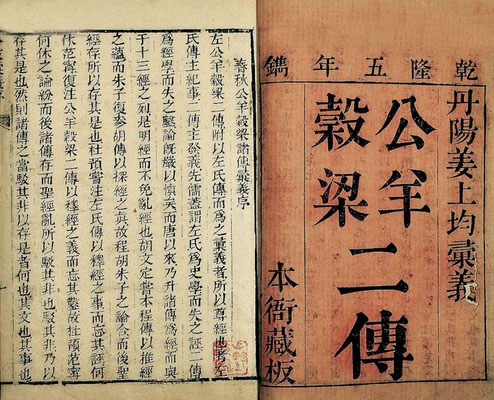 乾隆五年鐫
丹陽姜上均彙義
公羊
穀梁
二傳
本衙藏板
春秋公羊穀梁諸傳彙義序
公羊穀梁二傳附以左氏傳而為之彙義者所以尊經也考左
氏傳主紀事二傳主發義先儒蓋謂左氏為史學而失之誣二傳
為經學而失之鑿論旣嚴以慎矣而唐以來乃升諸傳為經而
于十三經之列是明經而不免亂經也胡文定嘗本程傳以推經
之蘊而朱子復參胡傳以探經之真故程胡朱子之論合而後聖
經存所以存其是也杜預嘗注左氏傳以釋經之事而忘其誣何
休范甯復注公羊穀梁二傳以釋經之義而忘其鑿故杜預范甯
何休之論紛而後諸傳存而聖經亂所以駁其非也駁其非乃以
存其是也然則諸傳之當駁其非以存其是者何也其文也其事也